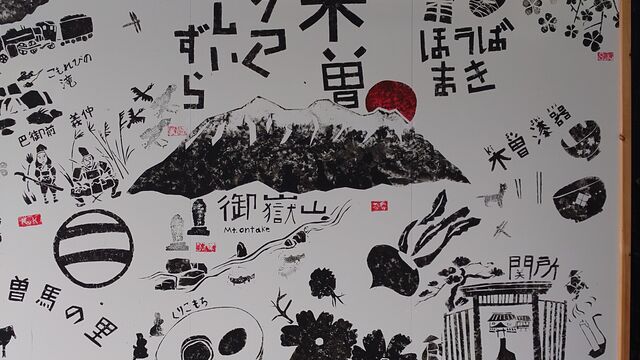 木曽
ずら
ほうば
まき
こもれびの
滝
義仲
巴御前
木曽漆器
御嶽山
Mt.ontake
関所
曽馬の里
くりこもち